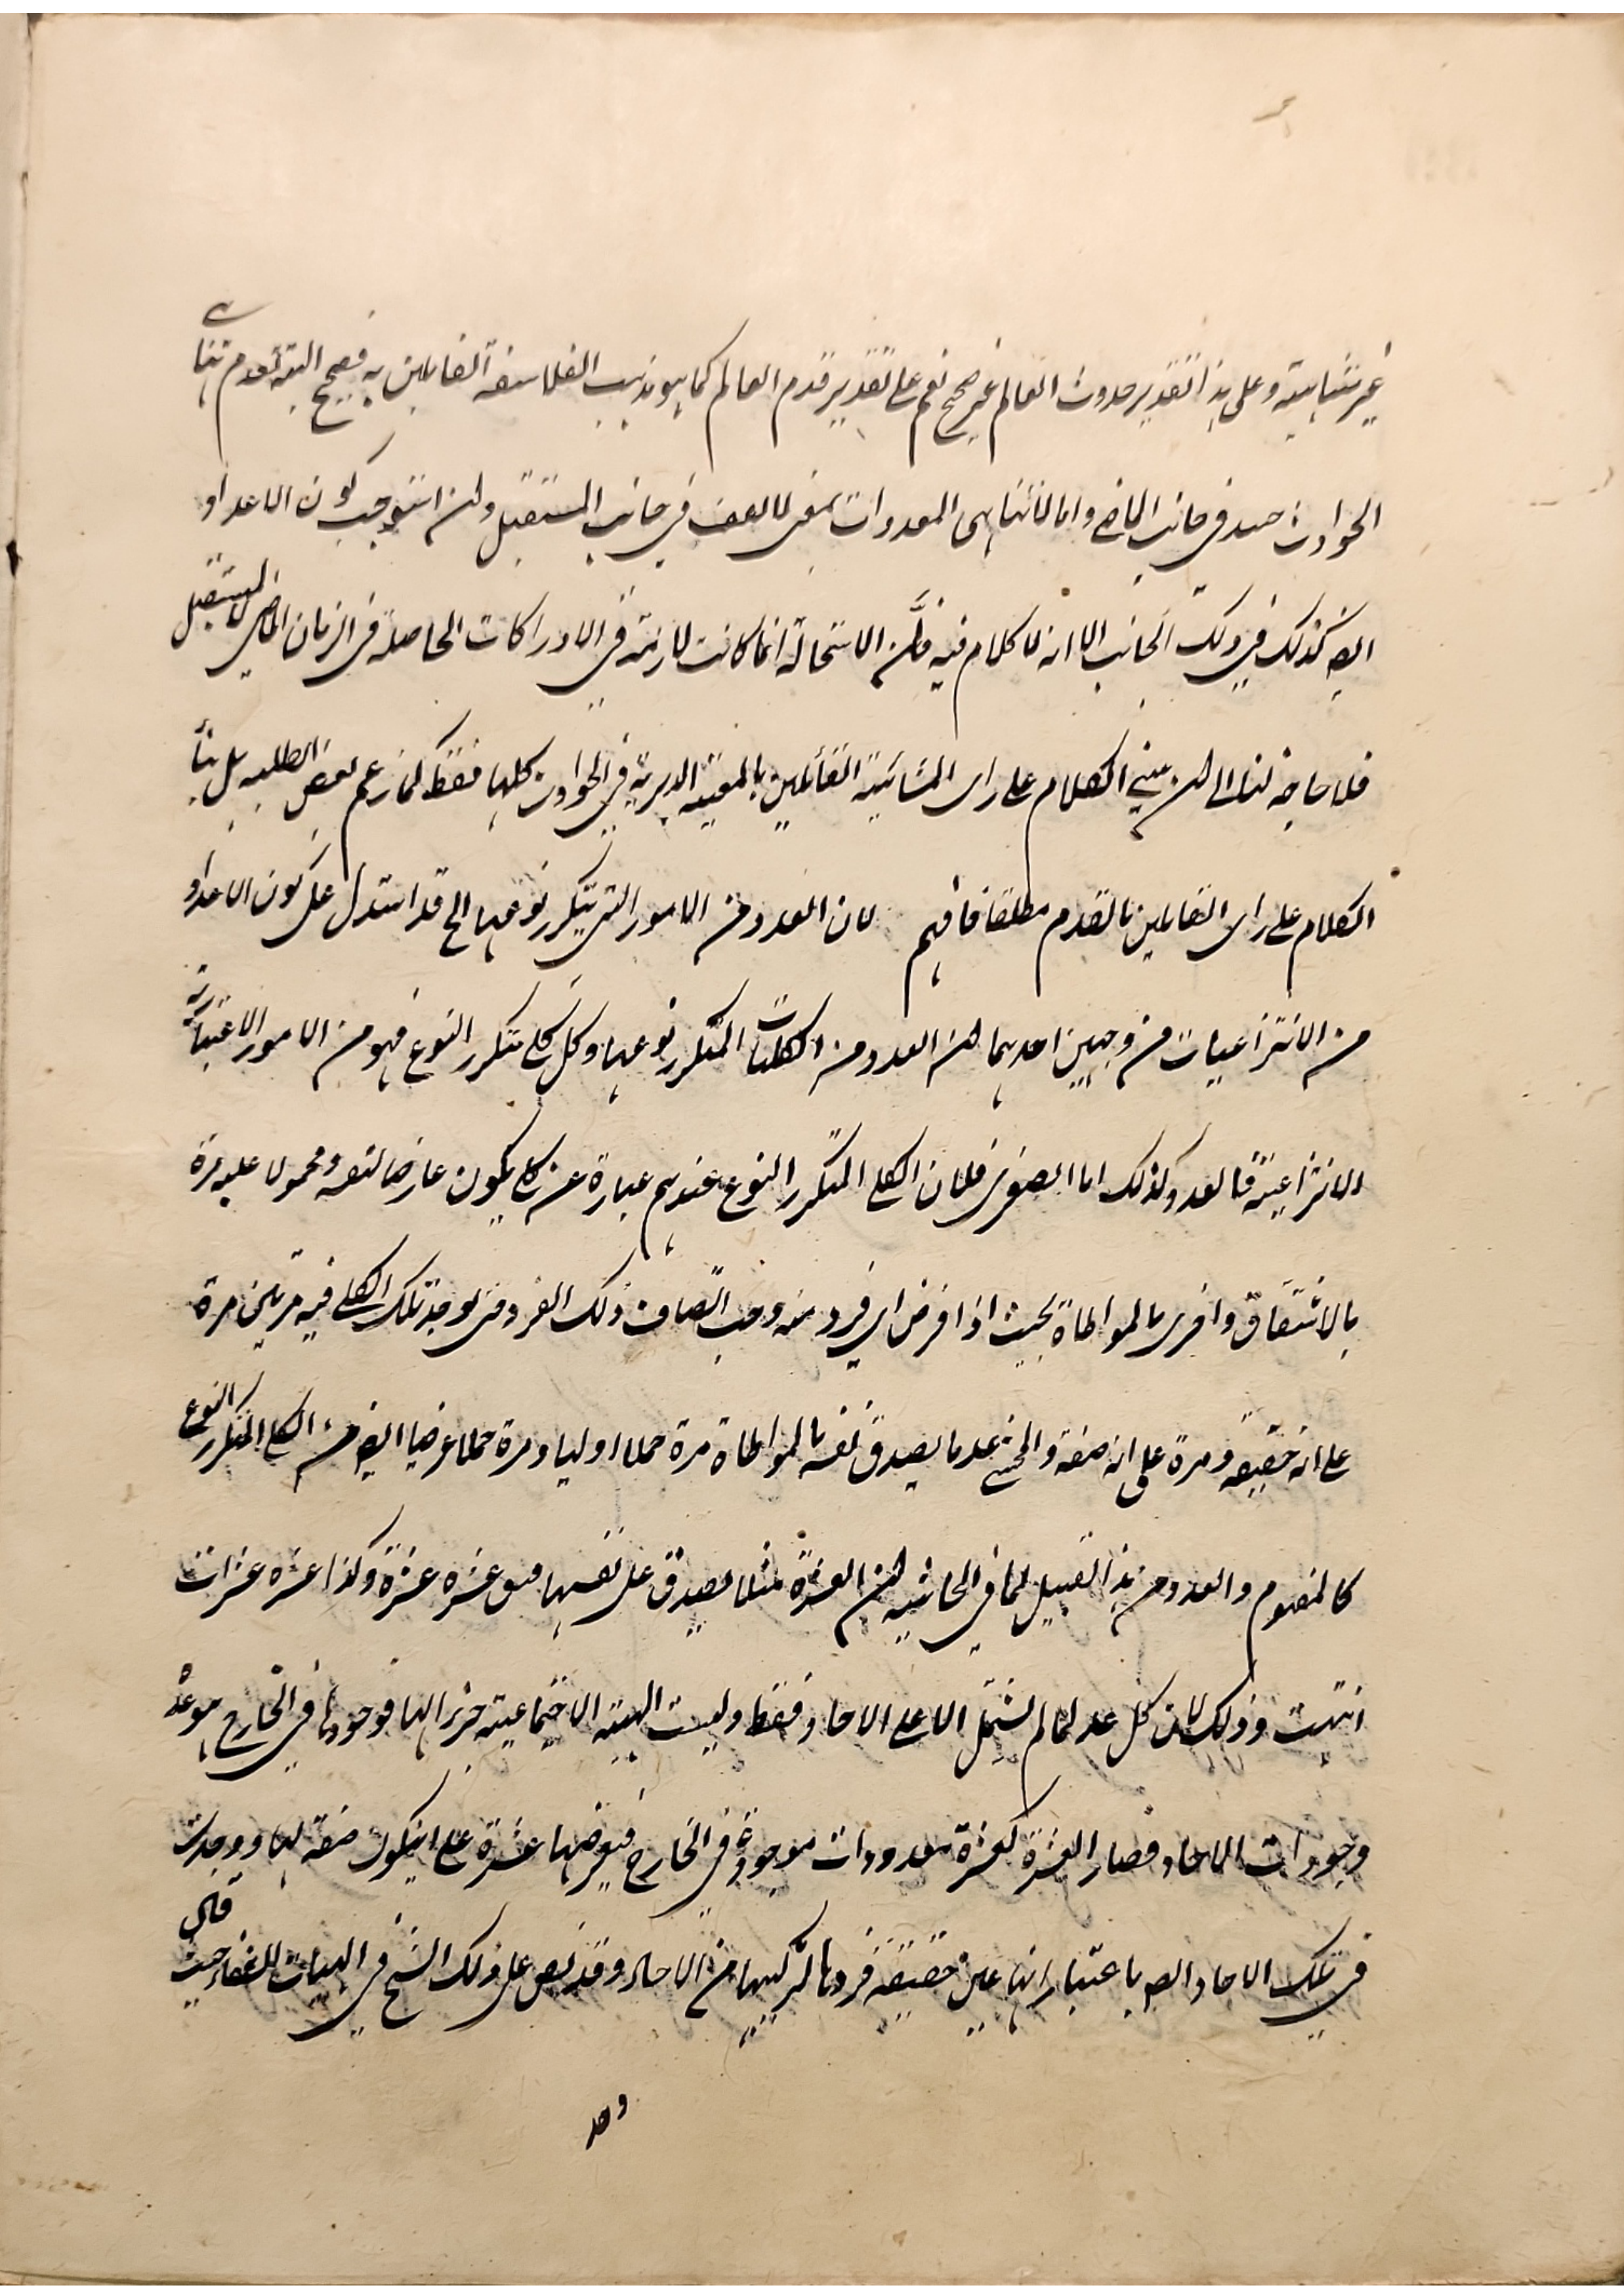 غير متناهية وعلى هذا التقدير حدوث العالم غير صحيح نعم على تقدير قدم العالم كما هو مذهب الفلاسفة القايلين به فيصح البتة لعدم تناهي
الحوادث ح في جانب الماضي واما لا تناهي المعدودات بمعنى لا يقف في جانب المستقبل وان استوجب كون الاعداد
ايض كذلك في ذلك الجانب الا انه لا كلام فيه فان الاستحالة انما كانت لازمة في الادراكات الحاصلة في الزمان الماضي لا المستقبل
فلا حاجة لنا الى ان يبنى الكلام على راى المشائية القائلين بالمعية الدهرية في الحوادث كلها فقط كما زعم بعض الطلبه بل بناء
الكلام على راى القايلين بالقدم مطلقا فافهم لان العدد من الامور التي يتكرر نوعها الخ قد استدل على كون الاعداد
من الانتزاعيات من وجهين احدهما ان العدد من الكليات المتكرر نوعها وكل كلي متكرر النوع فهو من الامور الاعتبارية
الانتزاعية فالعدد كذلك اما الصغرى فلان الكلي المتكرر النوع عندهم عبارة عن كلي يكون عارضا لنفسه ومحمولا عليه مرة
بالاشتقاق واخرى بالمواطاة بحيث اذا فرض اي فرد منه وجب اتصاف ذلك الفرد حتى يوجد تلك الكلي فيه مرتين مرة
على انه حقيقة ومرة على انه صفة والمحشي عد ما يصدق نفسه بالمواطاة مرة حملا اوليا ومرة حملا عرضيا ايض من الكلي المتكرر النوع
كالمفهوم والعدد من هذا القبيل لما في الحاشية ان العشرة مثلا تصدق على نفسها فيق عشرة عشرة وكذا عشرة عشرات
انتهت وذلك لان كل عدد لما لم يشتمل الا على الاحاد فقط وليست الهيئة الاجتماعية جزءا لها فوجودها في الخارج هو عد
وجودات الاحاد فصار العشرة كعشرة معدودات موجودة في الخارج فيعرضها عشرة على ان يكون صفة لها ووجدت
في تلك الاحاد ايض باعتبار انها عين حقيقة فردها لتركيبها من الاحاد وقد نص على ذلك الشيخ في الهيات الشفاء حيث قال
وحد